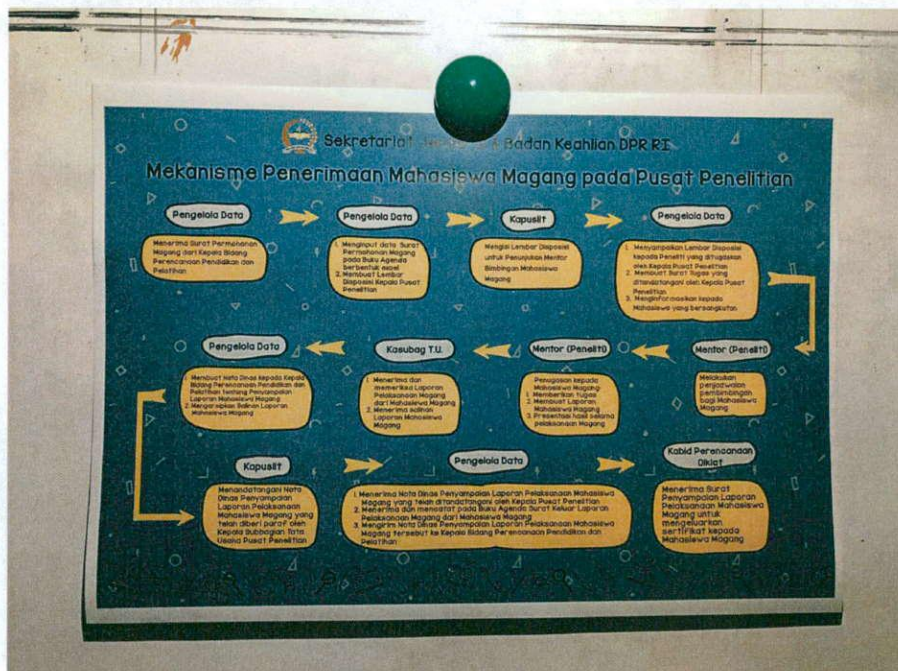 Sekretariat Jenderal & Badan Keahlian DPR RI
Mekanisme Penerimaan Mahasiswa Magang pada Pusat Penelitian
Pengelola Data
Menerima Surat Permohonan
Magang dari Kepala Bidang
Perencanaan Pendidikan dan
Pelatihan
Pengelola Data
1. Menginput data Surat
Permohonan Magang
pada Buku Agenda
berbentuk excel
2. Membuat Lembar
Disposisi Kepala Pusat
Penelitian
Kapuslit
Mengisi Lembar Disposisi
untuk Penunjukan Mentor
Bimbingan Mahasiswa
Magang
Pengelola Data
1. Menyampaikan Lembar Disposisi
kepada Peneliti yang ditugaskan
oleh Kepala Pusat Penelitian
2. Membuat Surat Tugas yang
ditandatangani oleh Kepala Pusat
Penelitian
3. Menginformasikan kepada
Mahasiswa yang bersangkutan
Mentor (Peneliti)
Melakukan
penjadwalan
pembimbingan
bagi Mahasiswa
Magang
Mentor (Peneliti)
Penugasan kepada
Mahasiswa Magang:
1. Memberikan tugas
2. Membuat Laporan
Mahasiswa Magang
3. Presentasi hasil selama
pelaksanaan Magang
Kasubag T.U.
1. Menerima dan
memeriksa Laporan
Pelaksanaan Magang
dari Mahasiswa Magang
2. Menerima salinan
Laporan Mahasiswa
Magang
Pengelola Data
1. Membuat Nota Dinas kepada Kepala
Bidang Perencanaan Pendidikan dan
Pelatihan tentang Penyampaian
Laporan Mahasiswa Magang
2. Mengarsipkan Salinan Laporan
Mahasiswa Magang
Kapuslit
Menandatangani Nota
Dinas Penyampaian
Laporan Pelaksanaan
Mahasiswa Magang yang
telah diberi paraf oleh
Kepala Subbagian Tata
Usaha Pusat Penelitian
Pengelola Data
1. Menerima Nota Dinas Penyampaian Laporan Pelaksanaan Mahasiswa
Magang yang telah ditandatangani oleh Kepala Pusat Penelitian
2. Menerima dan mencatat pada Buku Agenda Surat Keluar Laporan
Pelaksanaan Magang dari Mahasiswa Magang
3. Mengirim Nota Dinas Penyampaian Laporan Pelaksanaan Mahasiswa
Magang tersebut ke Kepala Bidang Perencanaan Pendidikan dan
Pelatihan
Kabid Perencanaan
Diklat
Menerima Surat
Penyampaian Laporan
Pelaksanaan Mahasiswa
Magang untuk
mengeluarkan
sertifikat kepada
Mahasiswa Magang